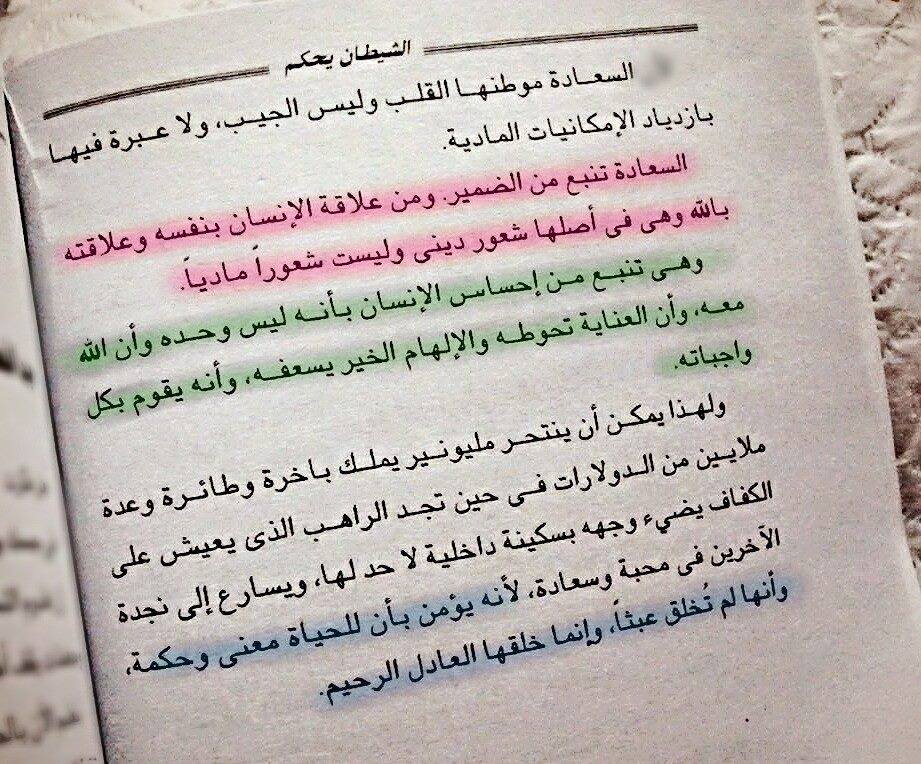 الشيطان يحكم
السعادة موطنها القلب وليس الجيب، ولا عبرة فيها
بازدياد الإمكانيات المادية.
السعادة تنبع من الضمير. ومن علاقة الإنسان بنفسه وعلاقته
بالله وهى فى أصلها شعور دينى وليست شعوراً مادياً.
وهى تنبع من إحساس الإنسان بأنه ليس وحده وأن الله
معه، وأن العناية تحوطه والإلهام الخير يسعفه، وأنه يقوم بكل
واجباته.
ولهذا يمكن أن ينتحر مليونير يملك باخرة وطائرة وعدة
ملايين من الدولارات فى حين تجد الراهب الذى يعيش على
الكفاف يضيء وجهه بسكينة داخلية لا حد لها، ويسارع إلى نجدة
الآخرين فى محبة وسعادة، لأنه يؤمن بأن للحياة معنى وحكمة،
وأنها لم تُخلق عبثاً، وإنما خلقها العادل الرحيم.